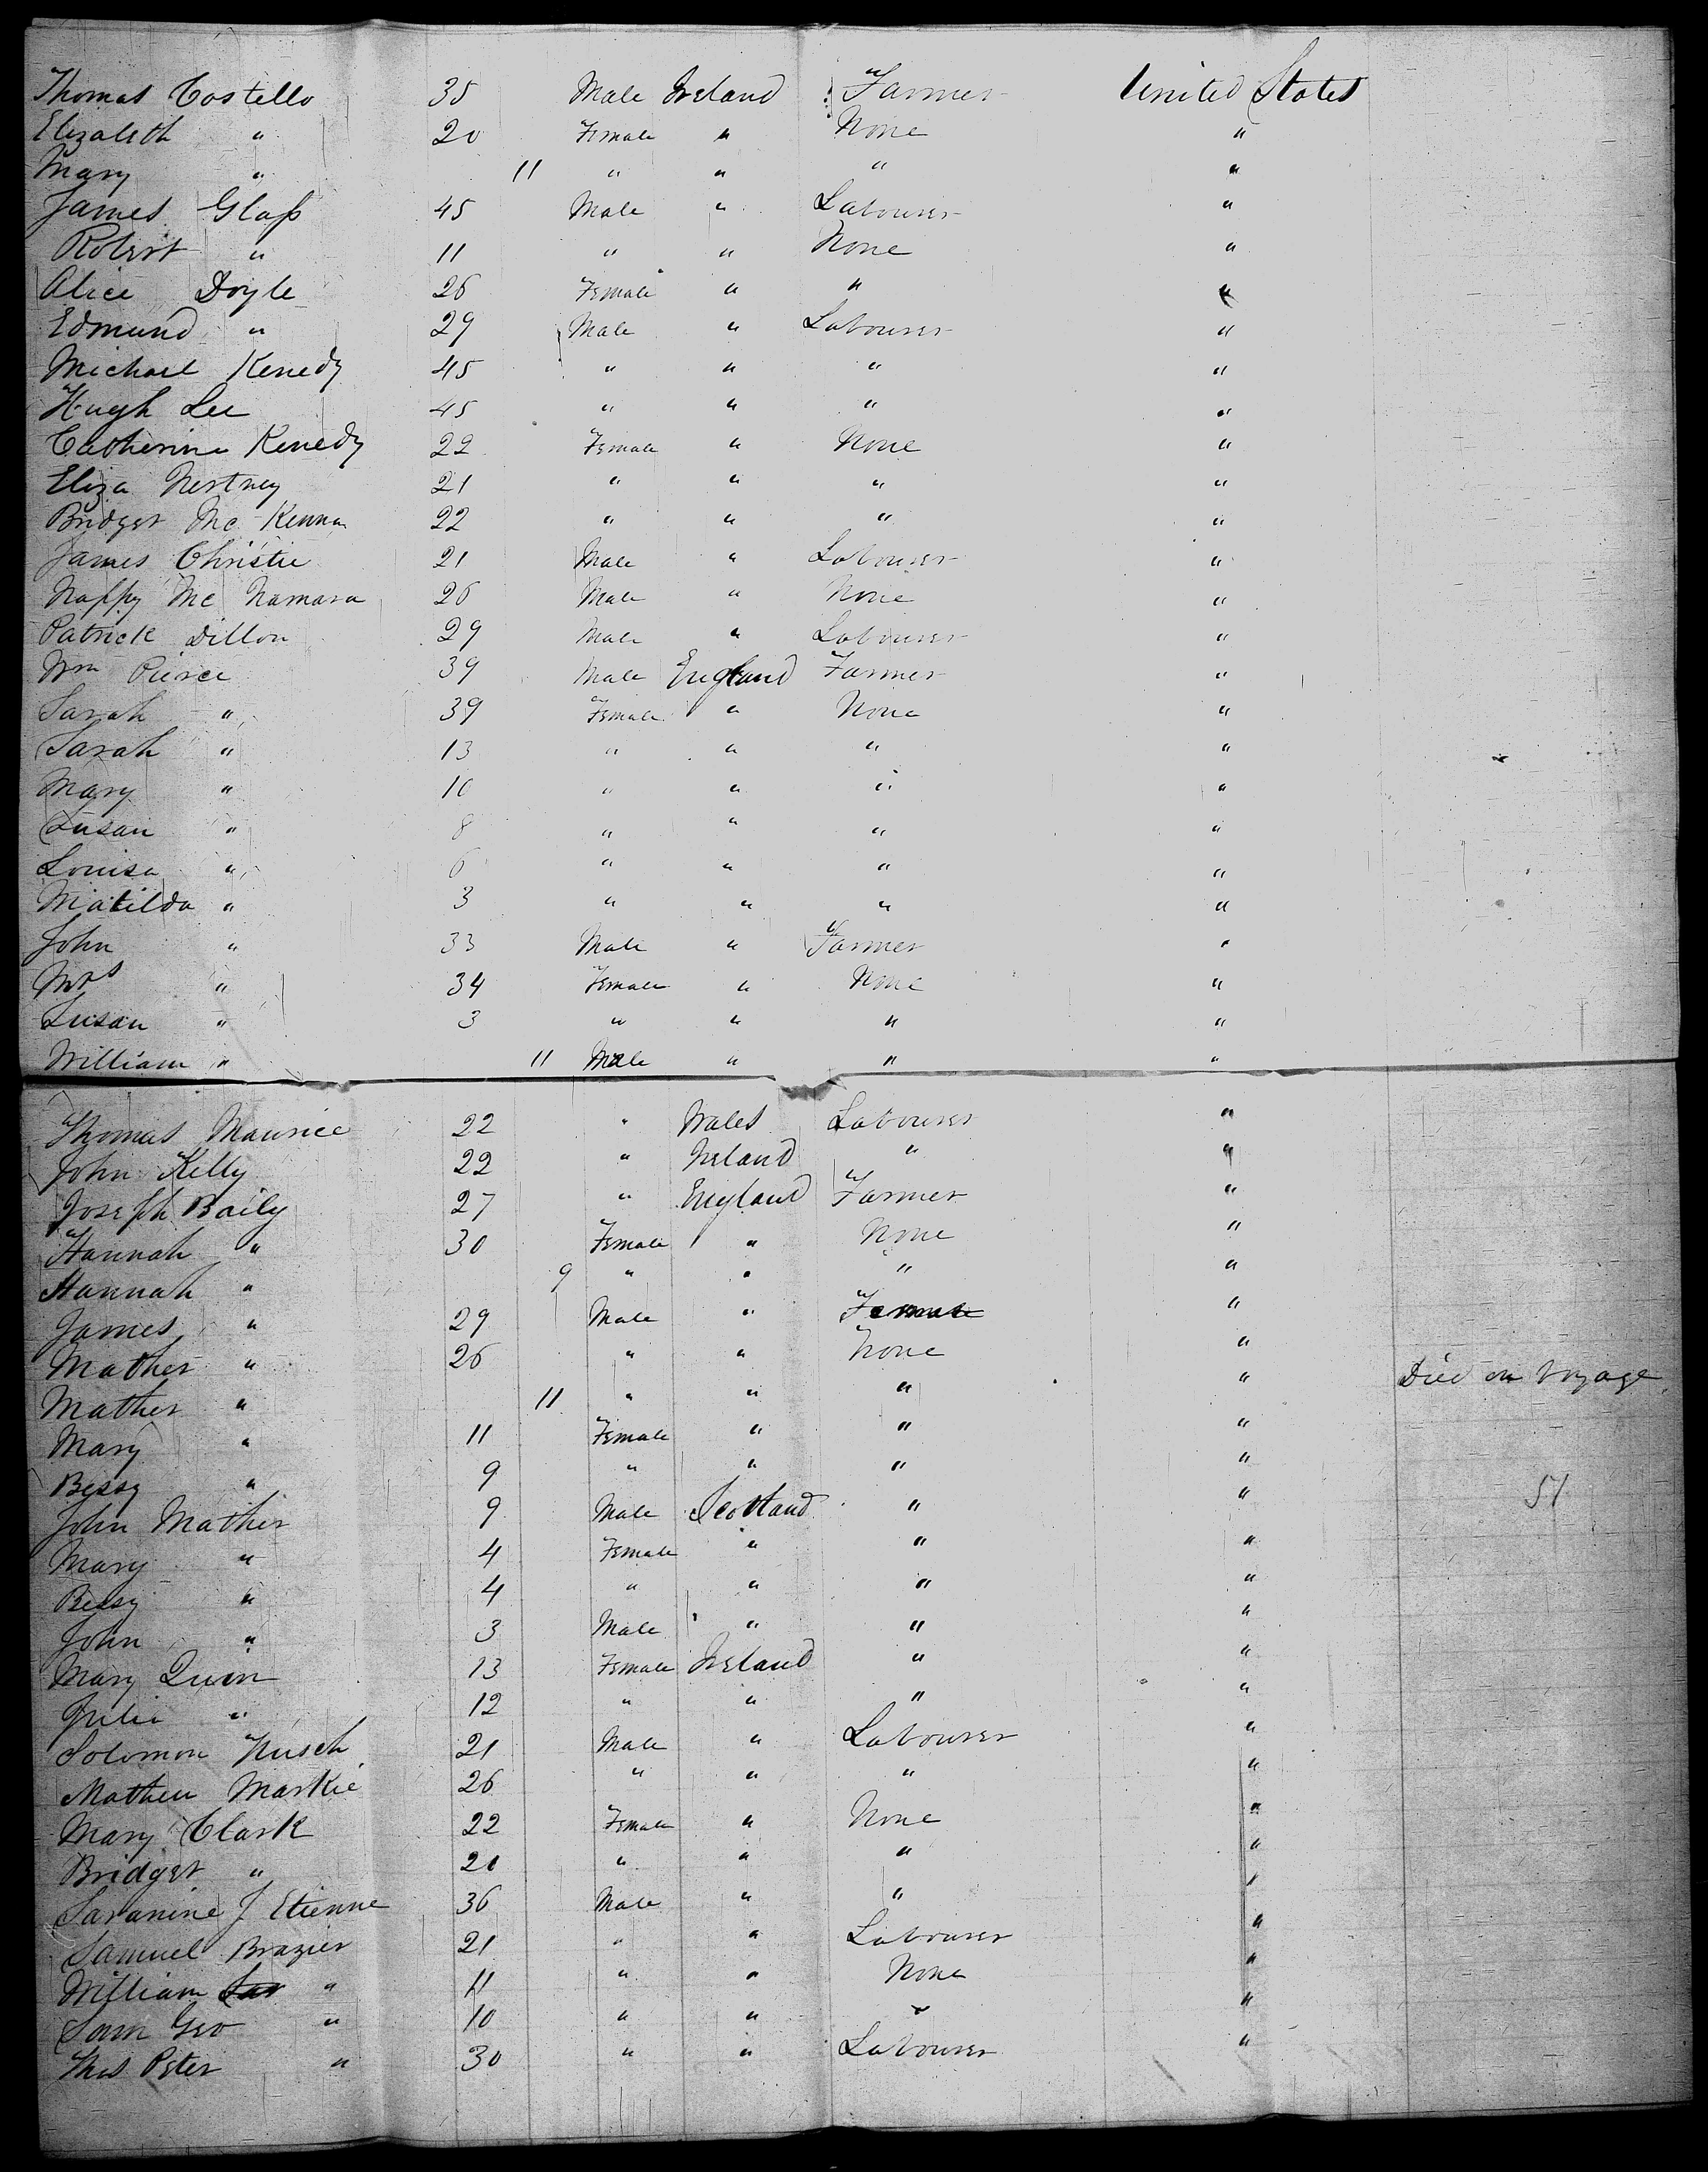 Thomas Costello 35 Male Ireland Farmer United States
Elizabeth " 20 Female " None "
Mary " 11 " " " "
James Glaſs 45 Male " Labourer "
Robert " 11 " " None "
Alice Doyle 26 Female " " "
Edmund " 29 Male " Labourer "
Michael Kenedy 45 " " " "
Hugh Lee 45 " " " "
Catherine Kenedy 22 Female " None "
Eliza Nestney 21 " " " "
Bridget Mc Kenna 22 " " " "
James Christie 21 Male " Labourer "
Nappy Mc Namara 26 Male " None "
Patrick Dillon 29 Male " Labourer "
Wm Pierce 39 Male England Farmer "
Sarah " 39 Female " None "
Sarah " 13 " " " "
Mary " 10 " " " "
Susan " 8 " " " "
Louisa " 6 " " " "
Matilda " 3 " " " "
John " 33 Male " Farmer "
Mrs " 34 Female " None "
Susan " 3 " " " "
William " 11 Male " " "
Thomas Maurice 22 " Wales Labourer "
John Kelly 22 " Ireland " "
Joseph Baily 27 " England Farmer "
Hannah " 30 Female " None "
Hannah " 9 " " " "
James " 29 Male " Female "
Mather " 26 " " None "
Mather " 11 " " " " Died on Voyage
Mary " 11 Female " " "
Bessy " 9 " " " "
John Mather 9 Male Scotland " " 51
Mary " 4 Female " " "
Bessy " 4 " " " "
John " 3 Male " " "
Mary Quin 13 Female Ireland " "
Julia " 12 " " " "
Solomon 21 Male " Labourer "
Mathew Markie 26 " " " "
Mary Clark 22 Female " None "
Bridget " 20 " " " "
J Etienne 36 Male " " "
Samuel Brazier 21 " " Labourer "
William Sar " 11 " " None "
Sam Geo " 10 " " " "
Thos Peter " 30 " " Labourer "